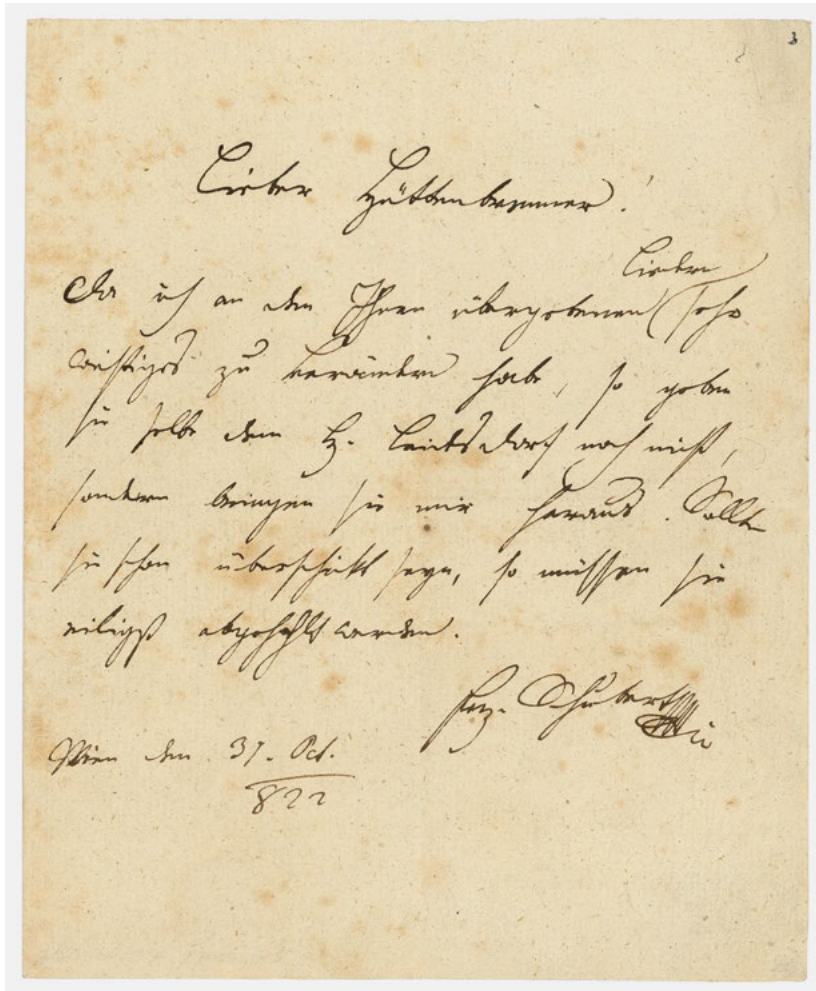 3
Lieber Hüttenbrenner!
Liedern
Da ich an den Ihnen übergebenen sehr
wichtiges zu verändern habe, so geben
sie selbe dem H. Leidesdorf noch nicht,
sondern bringen sie mir heraus. Sollten
sie schon überschickt seyn, so müssen sie
eiligst abgehohlt werden.
Frz. Schubert
Wien den 31. Oct.
822